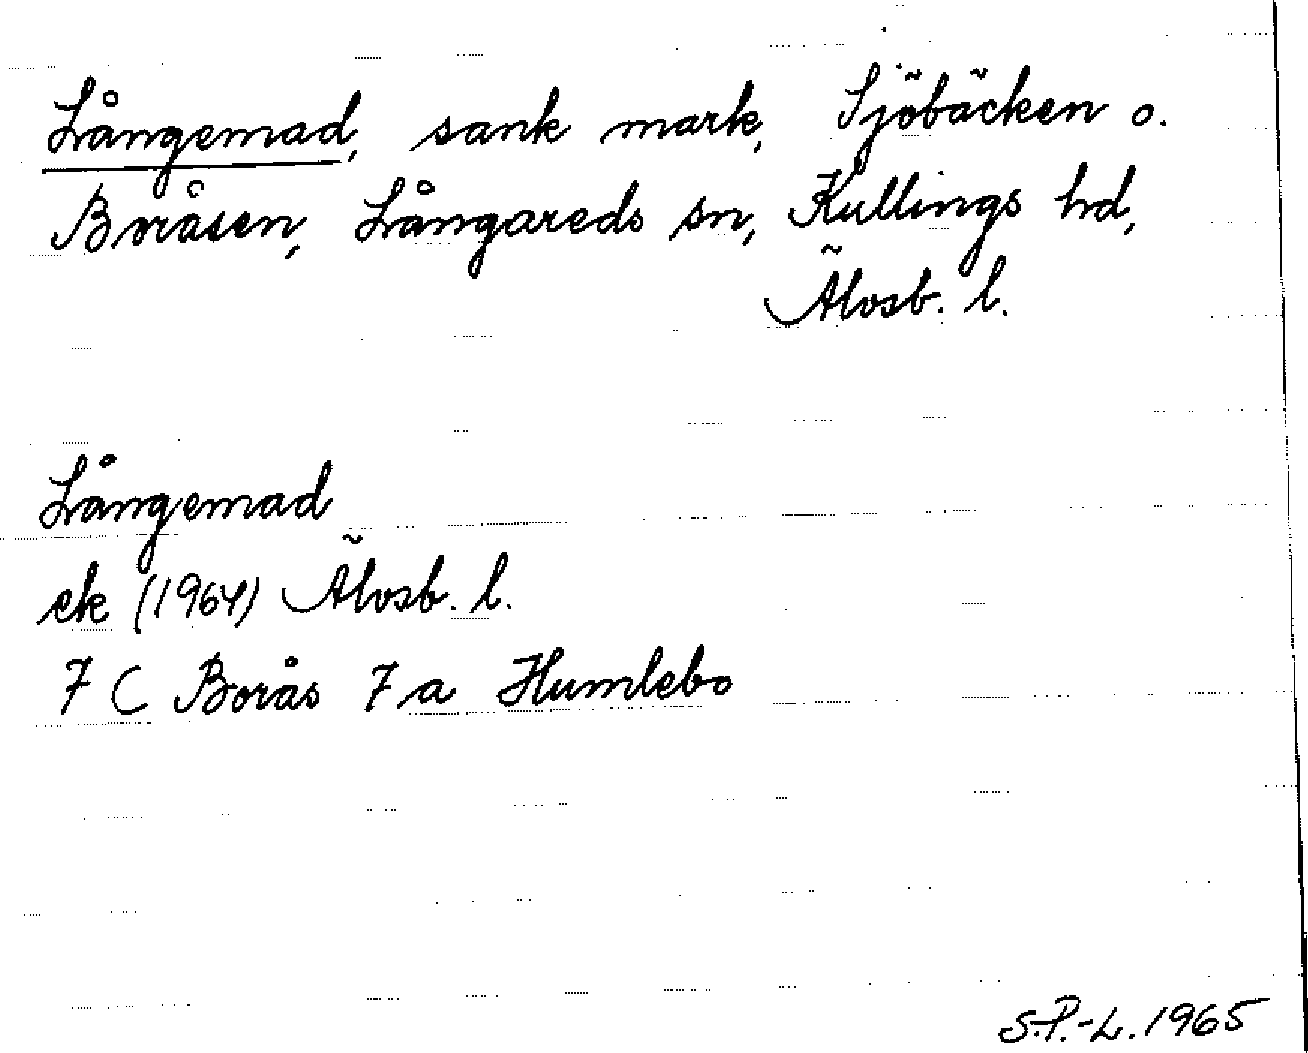 Långemad, sank mark, Sjöbäcken o.
Bråsen, Långareds sn, Kullings hd,
Älvsb. l.
Långemad
ek (1964) Älvsb. l.
7 C Borås 7 a Humlebo
S.P.-L. 1965